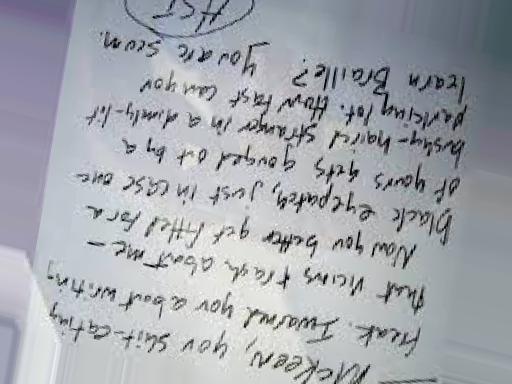 McKeen, you shit-eating
freak. I warned you about writing
that vicious trash about me —
Now you better get fitted for a
black eyepatch, just in case one
of yours gets gouged out by a
bushy-haired stranger in a dimly-lit
parking lot. How fast can you
learn Braille? You are scum.
HST